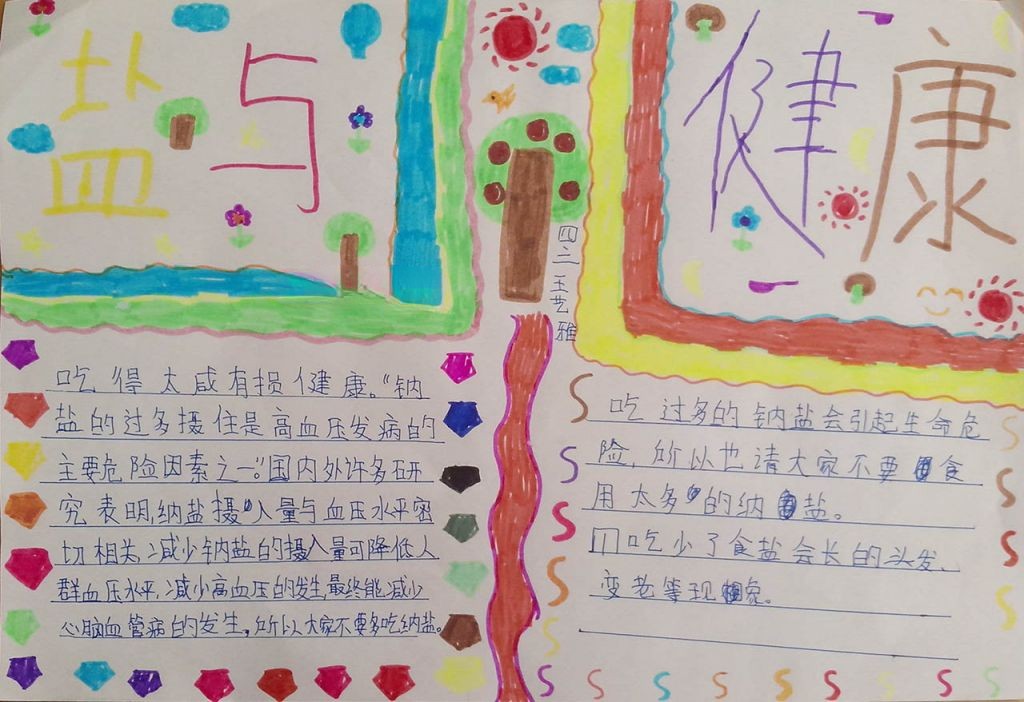 盐与
健康
四二王艺雅
吃得太咸有损健康。“钠
盐的过多摄住是高血压发病的
主要危险因素之一”国内外许多研
究表明,纳盐摄入量与血压水平密
切相关,减少钠盐的摄入量可降低人
群血压水平,减少高血压的发生,最终能减少
心脑血管病的发生,所以大家不要多吃纳盐。
吃过多的钠盐会引起生命危
险,所以也请大家不要食
用太多的纳盐。
吃少了食盐会长的头发、
变老等现象。